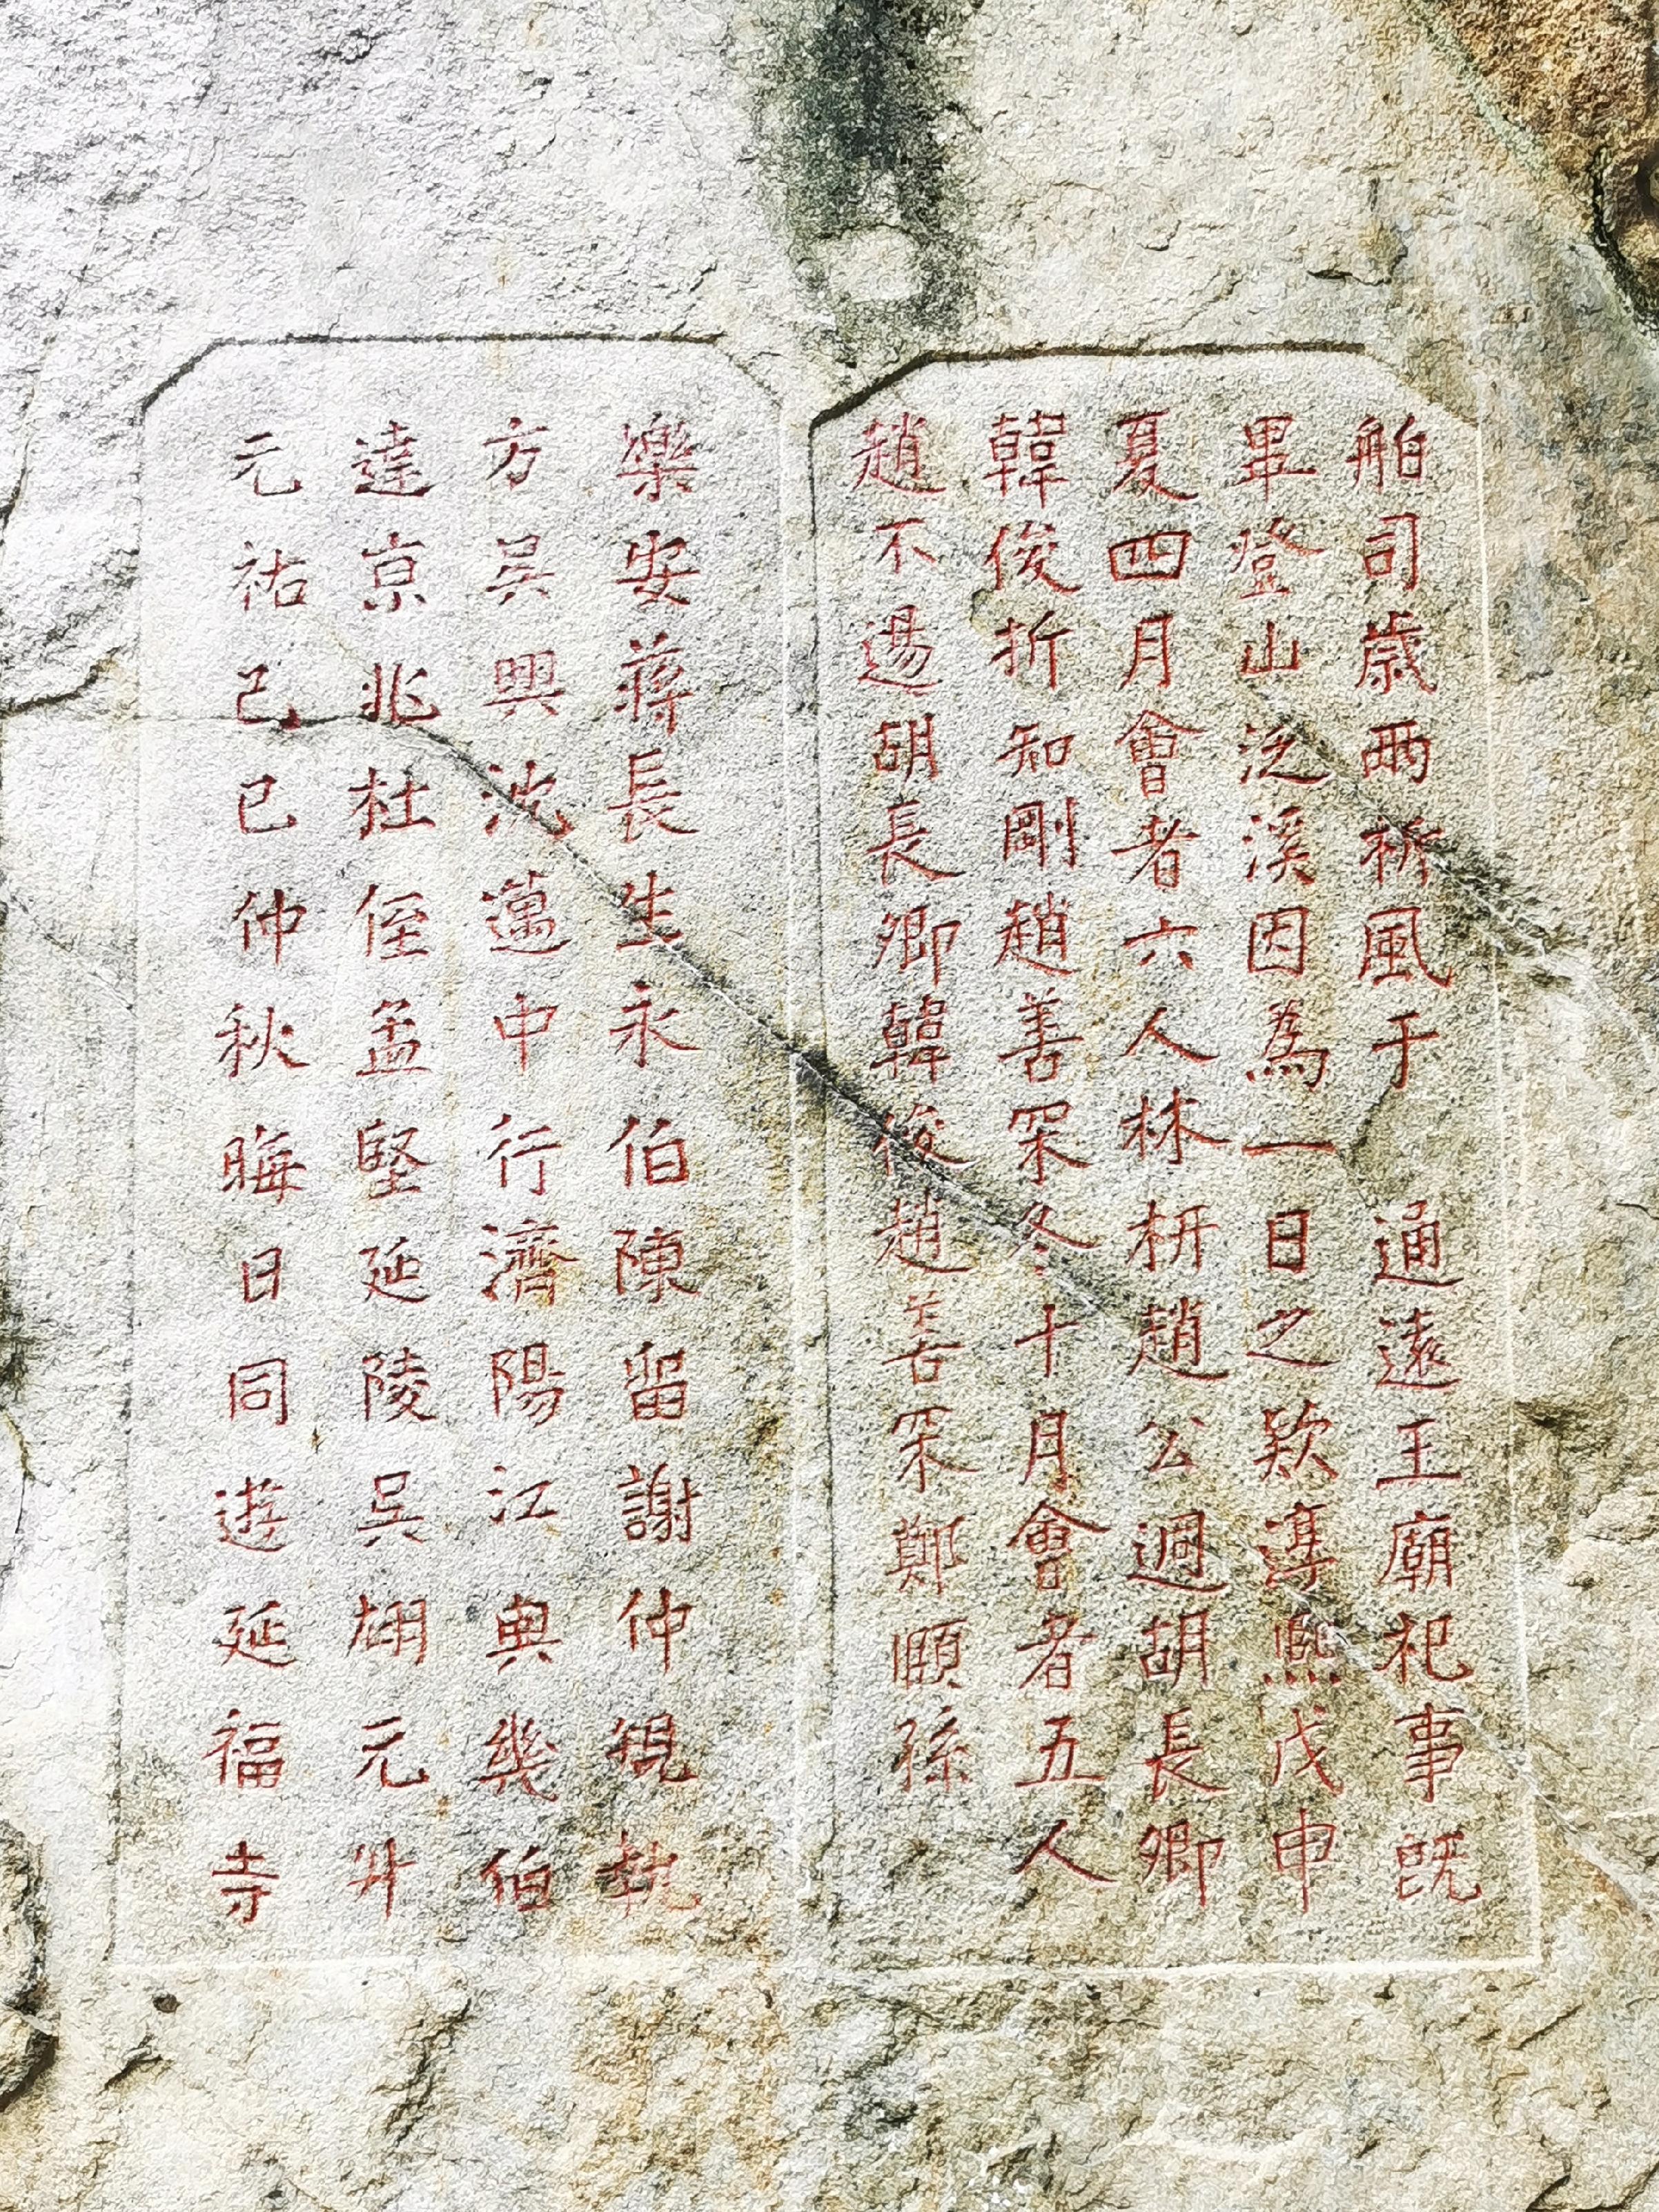 舶司歲兩祈風于 通遠王廟祀事既
畢登山泛溪因為一日之欵淳熙戊申
夏四月會者六人林枅趙公迥胡長卿
韓俊折知剛趙善罙冬十月會者五人
趙不逷胡長卿韓俊趙善罙鄭頤孫
樂安蔣長生永伯陳留謝仲規執
方吳興沈邁中行濟陽江與幾伯
達京兆杜侄孟堅延陵吳元升
元祐己巳仲秋晦日同遊延福寺